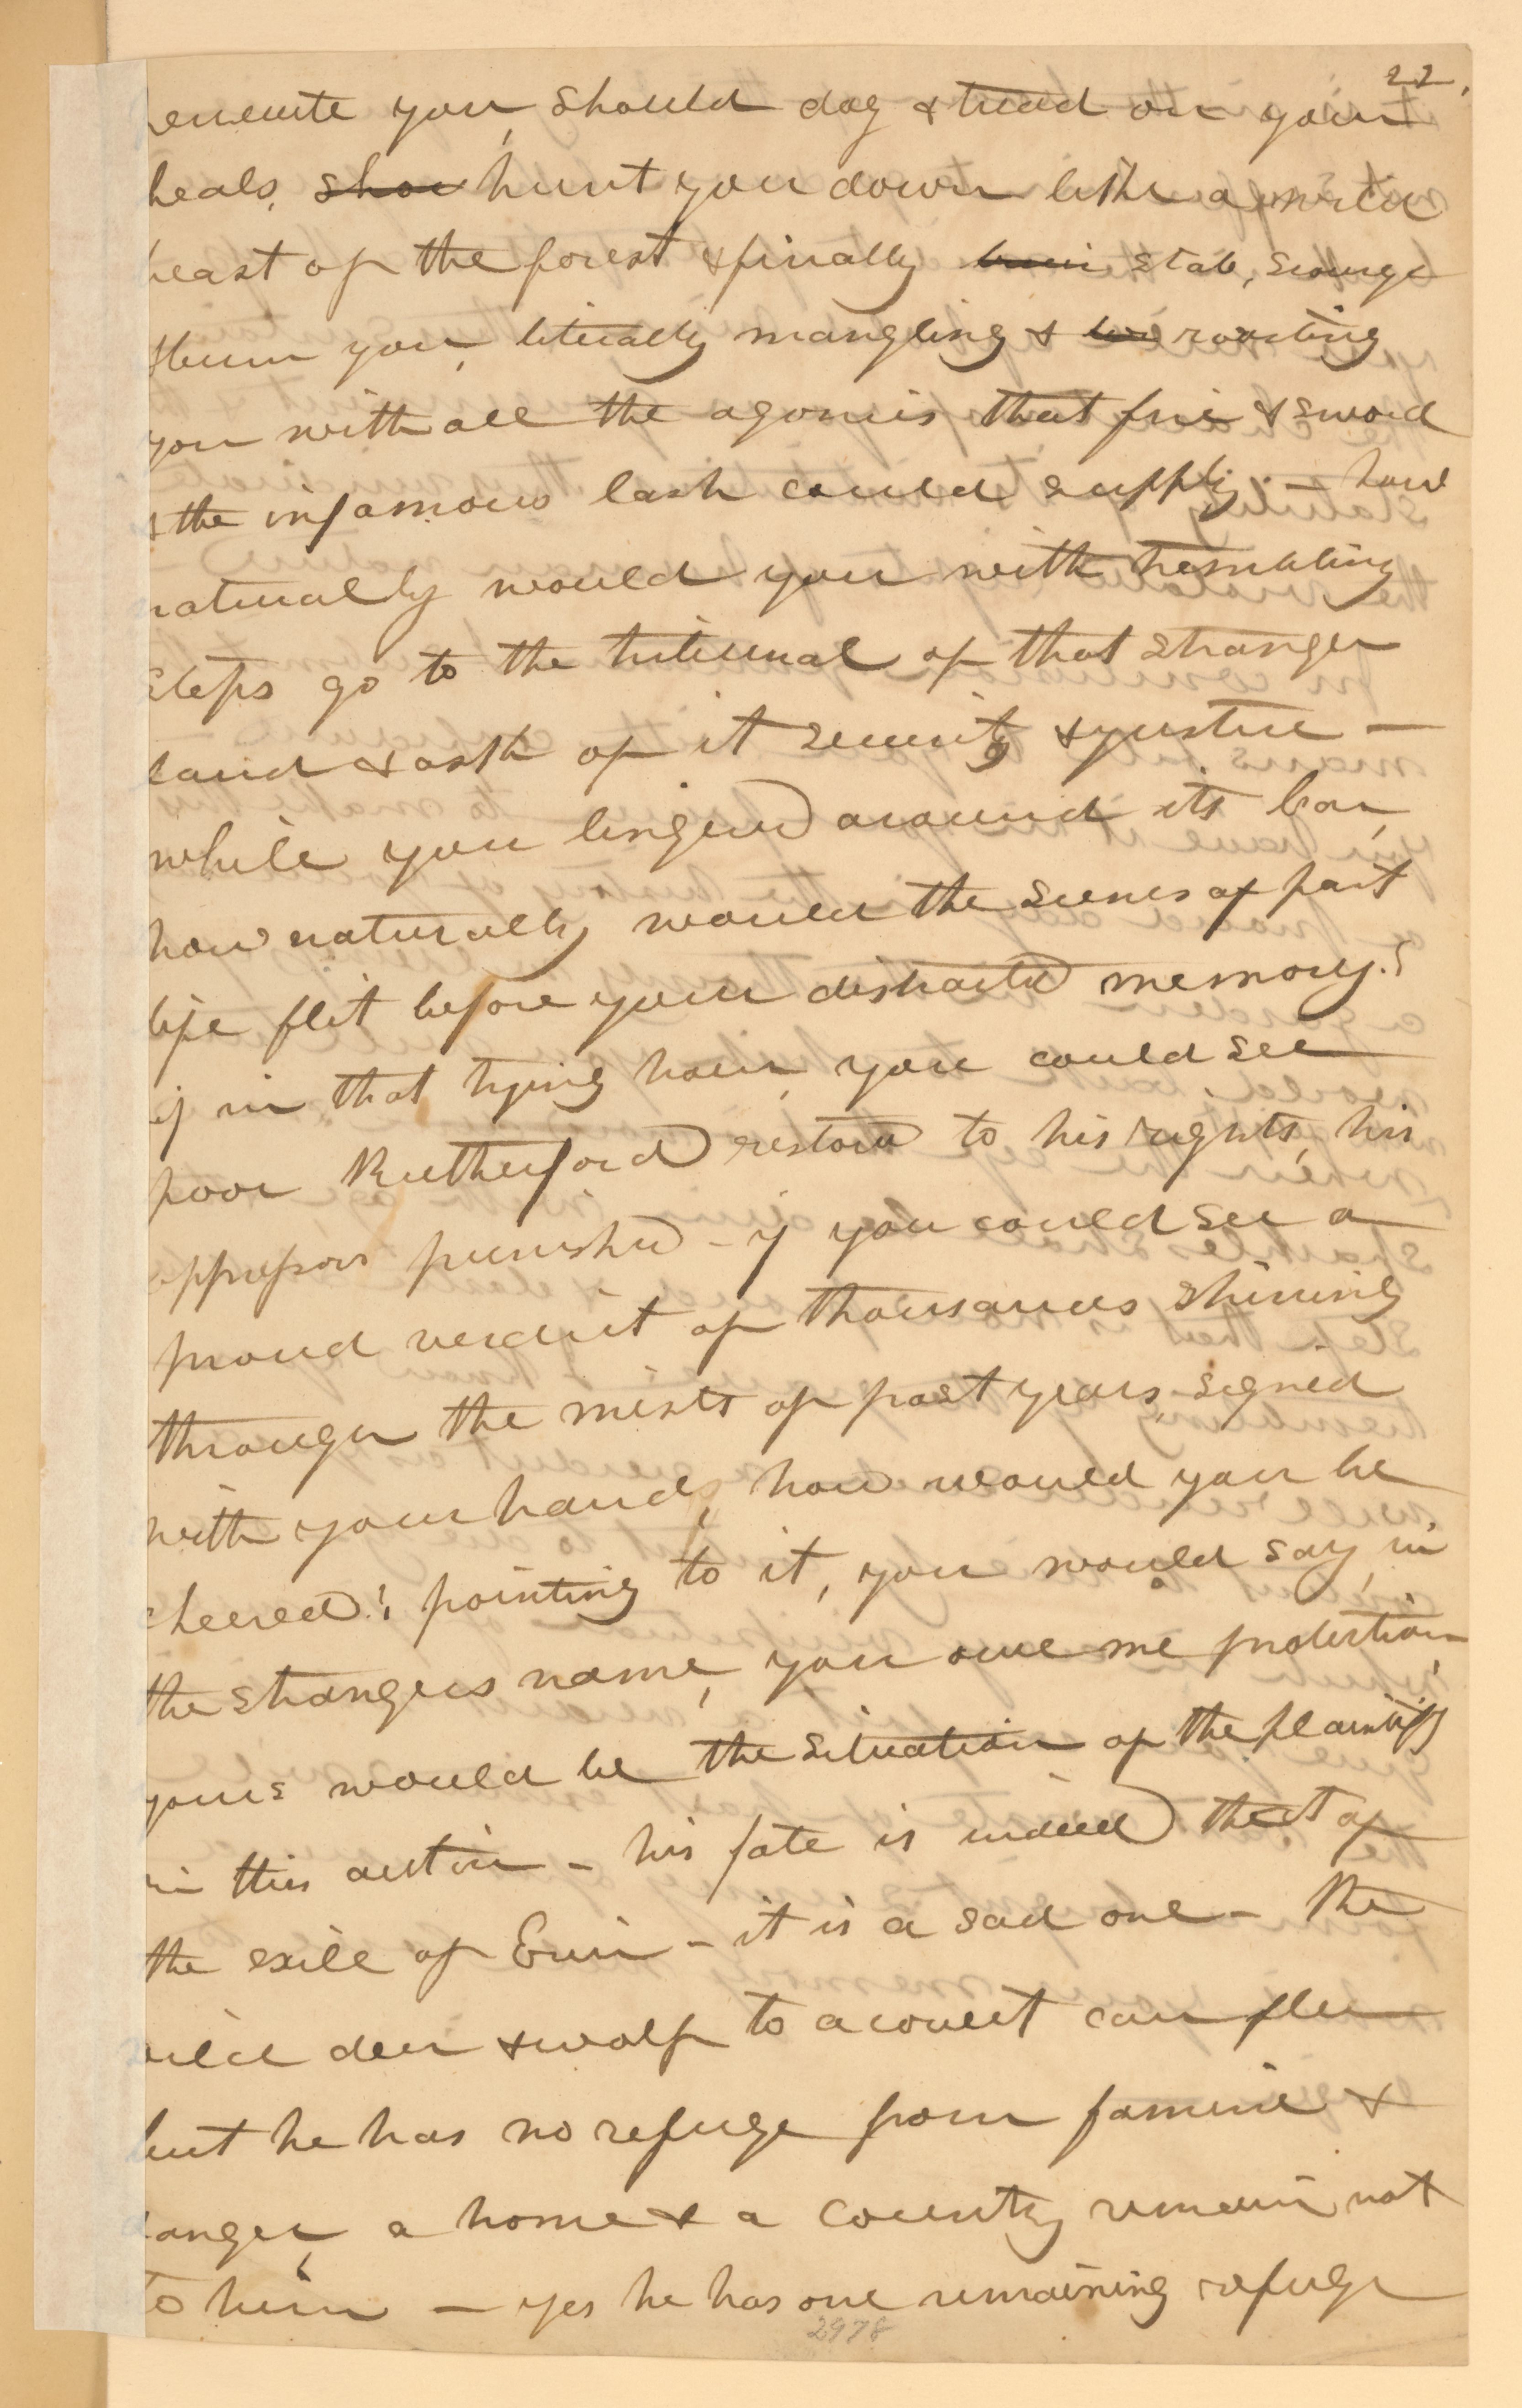 22.
execute you, should dog & tread on your
heals, shou hunt you down like a wild
beast of the forest & finally burn stab, scourge
& burn you, literally mangling & roasting
you with all the agonies that fire & sword
& the infamous lash could supply. — how
naturally would you with trembling
steps go to the tribunal of that stranger
land & ask of it security & justice —
while you lingered around its bar,
how naturally would the scenes of past
life flit before your distracted memory. &
if in that trying hour, you could see
poor Rutherford restored to his rights, his
oppressors punished - if you could see a
proud verdict of thousands shining
through the mists of past years, signed
with your hand, how would you be
cheered! pointing to it, you would say, in
the strangers name, you owe me protection,
yours would be the situation of the plaintiff
in this action - his fate is indeed that of
the exile of Erin - it is a sad one - The
wild deer & wolf to a covert can flee
but he has no refuge from famine &
danger, a home & a country remain not
to him — yes he has one remaining refuge
2978